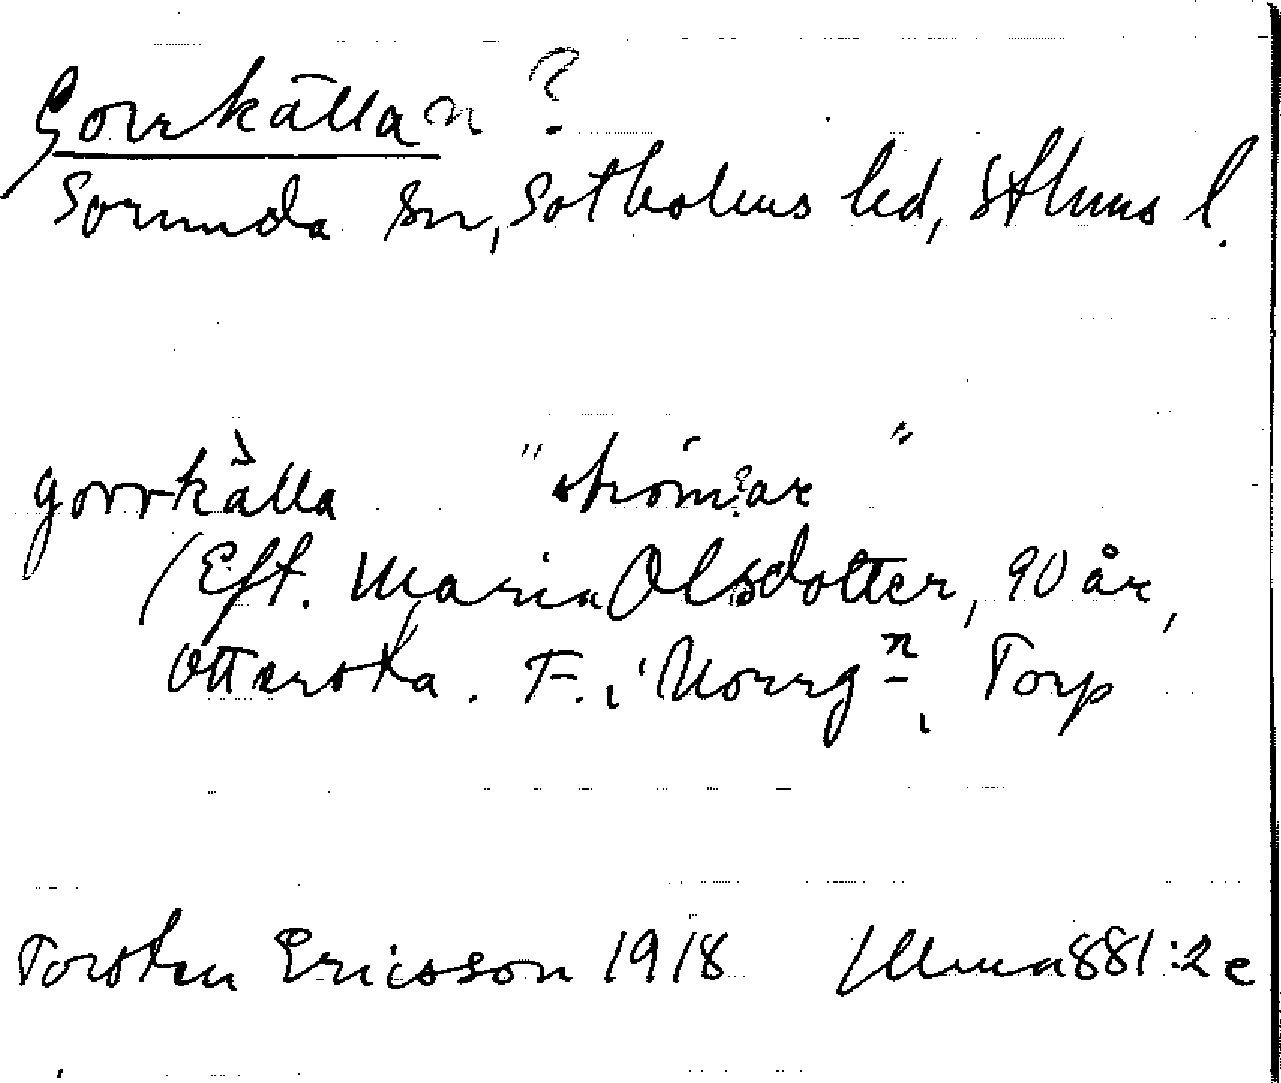 Gorrkällan ?
Sorunda sn, Sotholms hd, Sthms l.
gorrkälla "strömar"
(Eft. Maria Olsdotter, 90 år,
Ottersta. F. i Norrgn i Torp
Torsten Ericsson 1918 Ulma 881:2 c